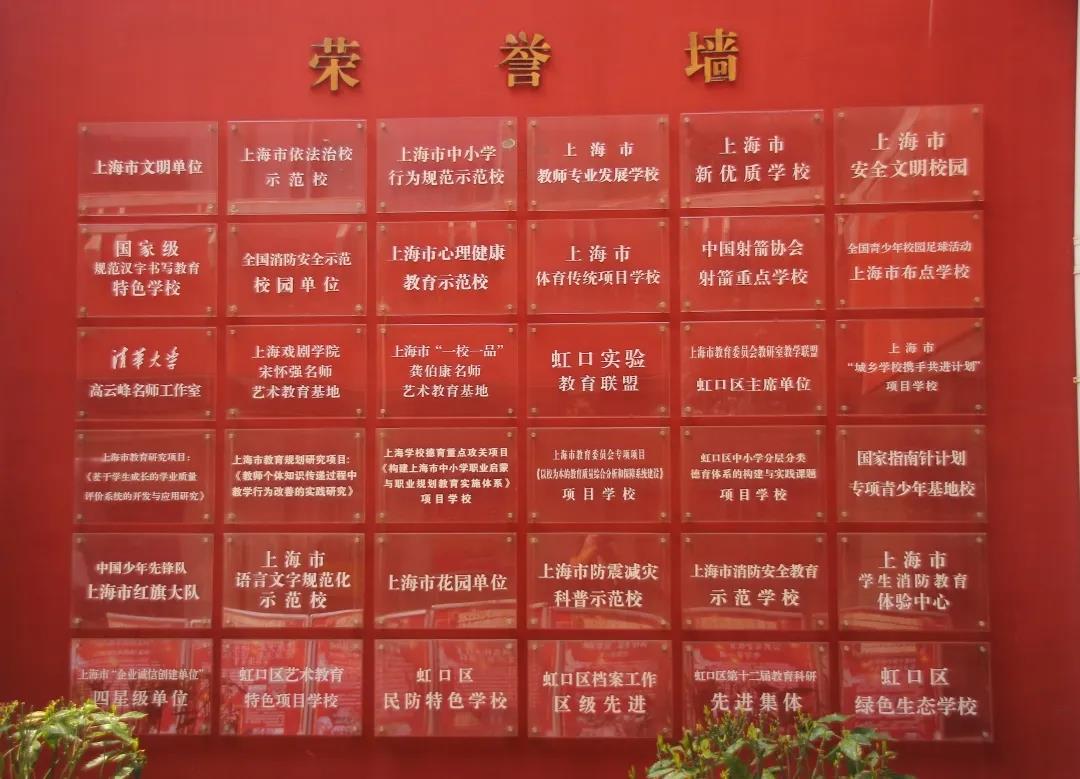 荣誉墙
上海市文明单位
上海市依法治校
示范校
上海市中小学
行为规范示范校
上海市
教师专业发展学校
上海市
新优质学校
上海市
安全文明校园
国家级
规范汉字书写教育
特色学校
全国消防安全示范
校园单位
上海市心理健康
教育示范校
上海市
体育传统项目学校
中国射箭协会
射箭重点学校
全国青少年校园足球活动
上海市布点学校
清华大学
高云峰名师工作室
上海戏剧学院
宋怀强名师
艺术教育基地
上海市“一校一品”
龚伯康名师
艺术教育基地
虹口实验
教育联盟
上海市教育委员会教研室教学联盟
虹口区主席单位
上海市
“城乡学校携手共进计划”
项目学校
上海市教育研究项目：
《基于学生成长的学业质量
评价系统的开发与应用研究》
上海市教育规划研究项目：
《教师个体知识传递过程中
教学行为改善的实践研究》
上海学校德育重点攻关项目
《构建上海市中小学职业启蒙
与职业规划教育实施体系》
项目学校
上海市教育委员会专项项目
《以校为本的教育质量综合分析和保障系统建设》
项目学校
虹口区中小学分层分类
德育体系的构建与实践课题
项目学校
国家指南针计划
专项青少年基地校
中国少年先锋队
上海市红旗大队
上海市
语言文字规范化
示范校
上海市花园单位
上海市防震减灾
科普示范校
上海市消防安全教育
示范学校
上海市
学生消防教育
体验中心
上海市“企业诚信创建单位”
四星级单位
虹口区艺术教育
特色项目学校
虹口区
民防特色学校
虹口区档案工作
区级先进
虹口区第十二届教育科研
先进集体
虹口区
绿色生态学校